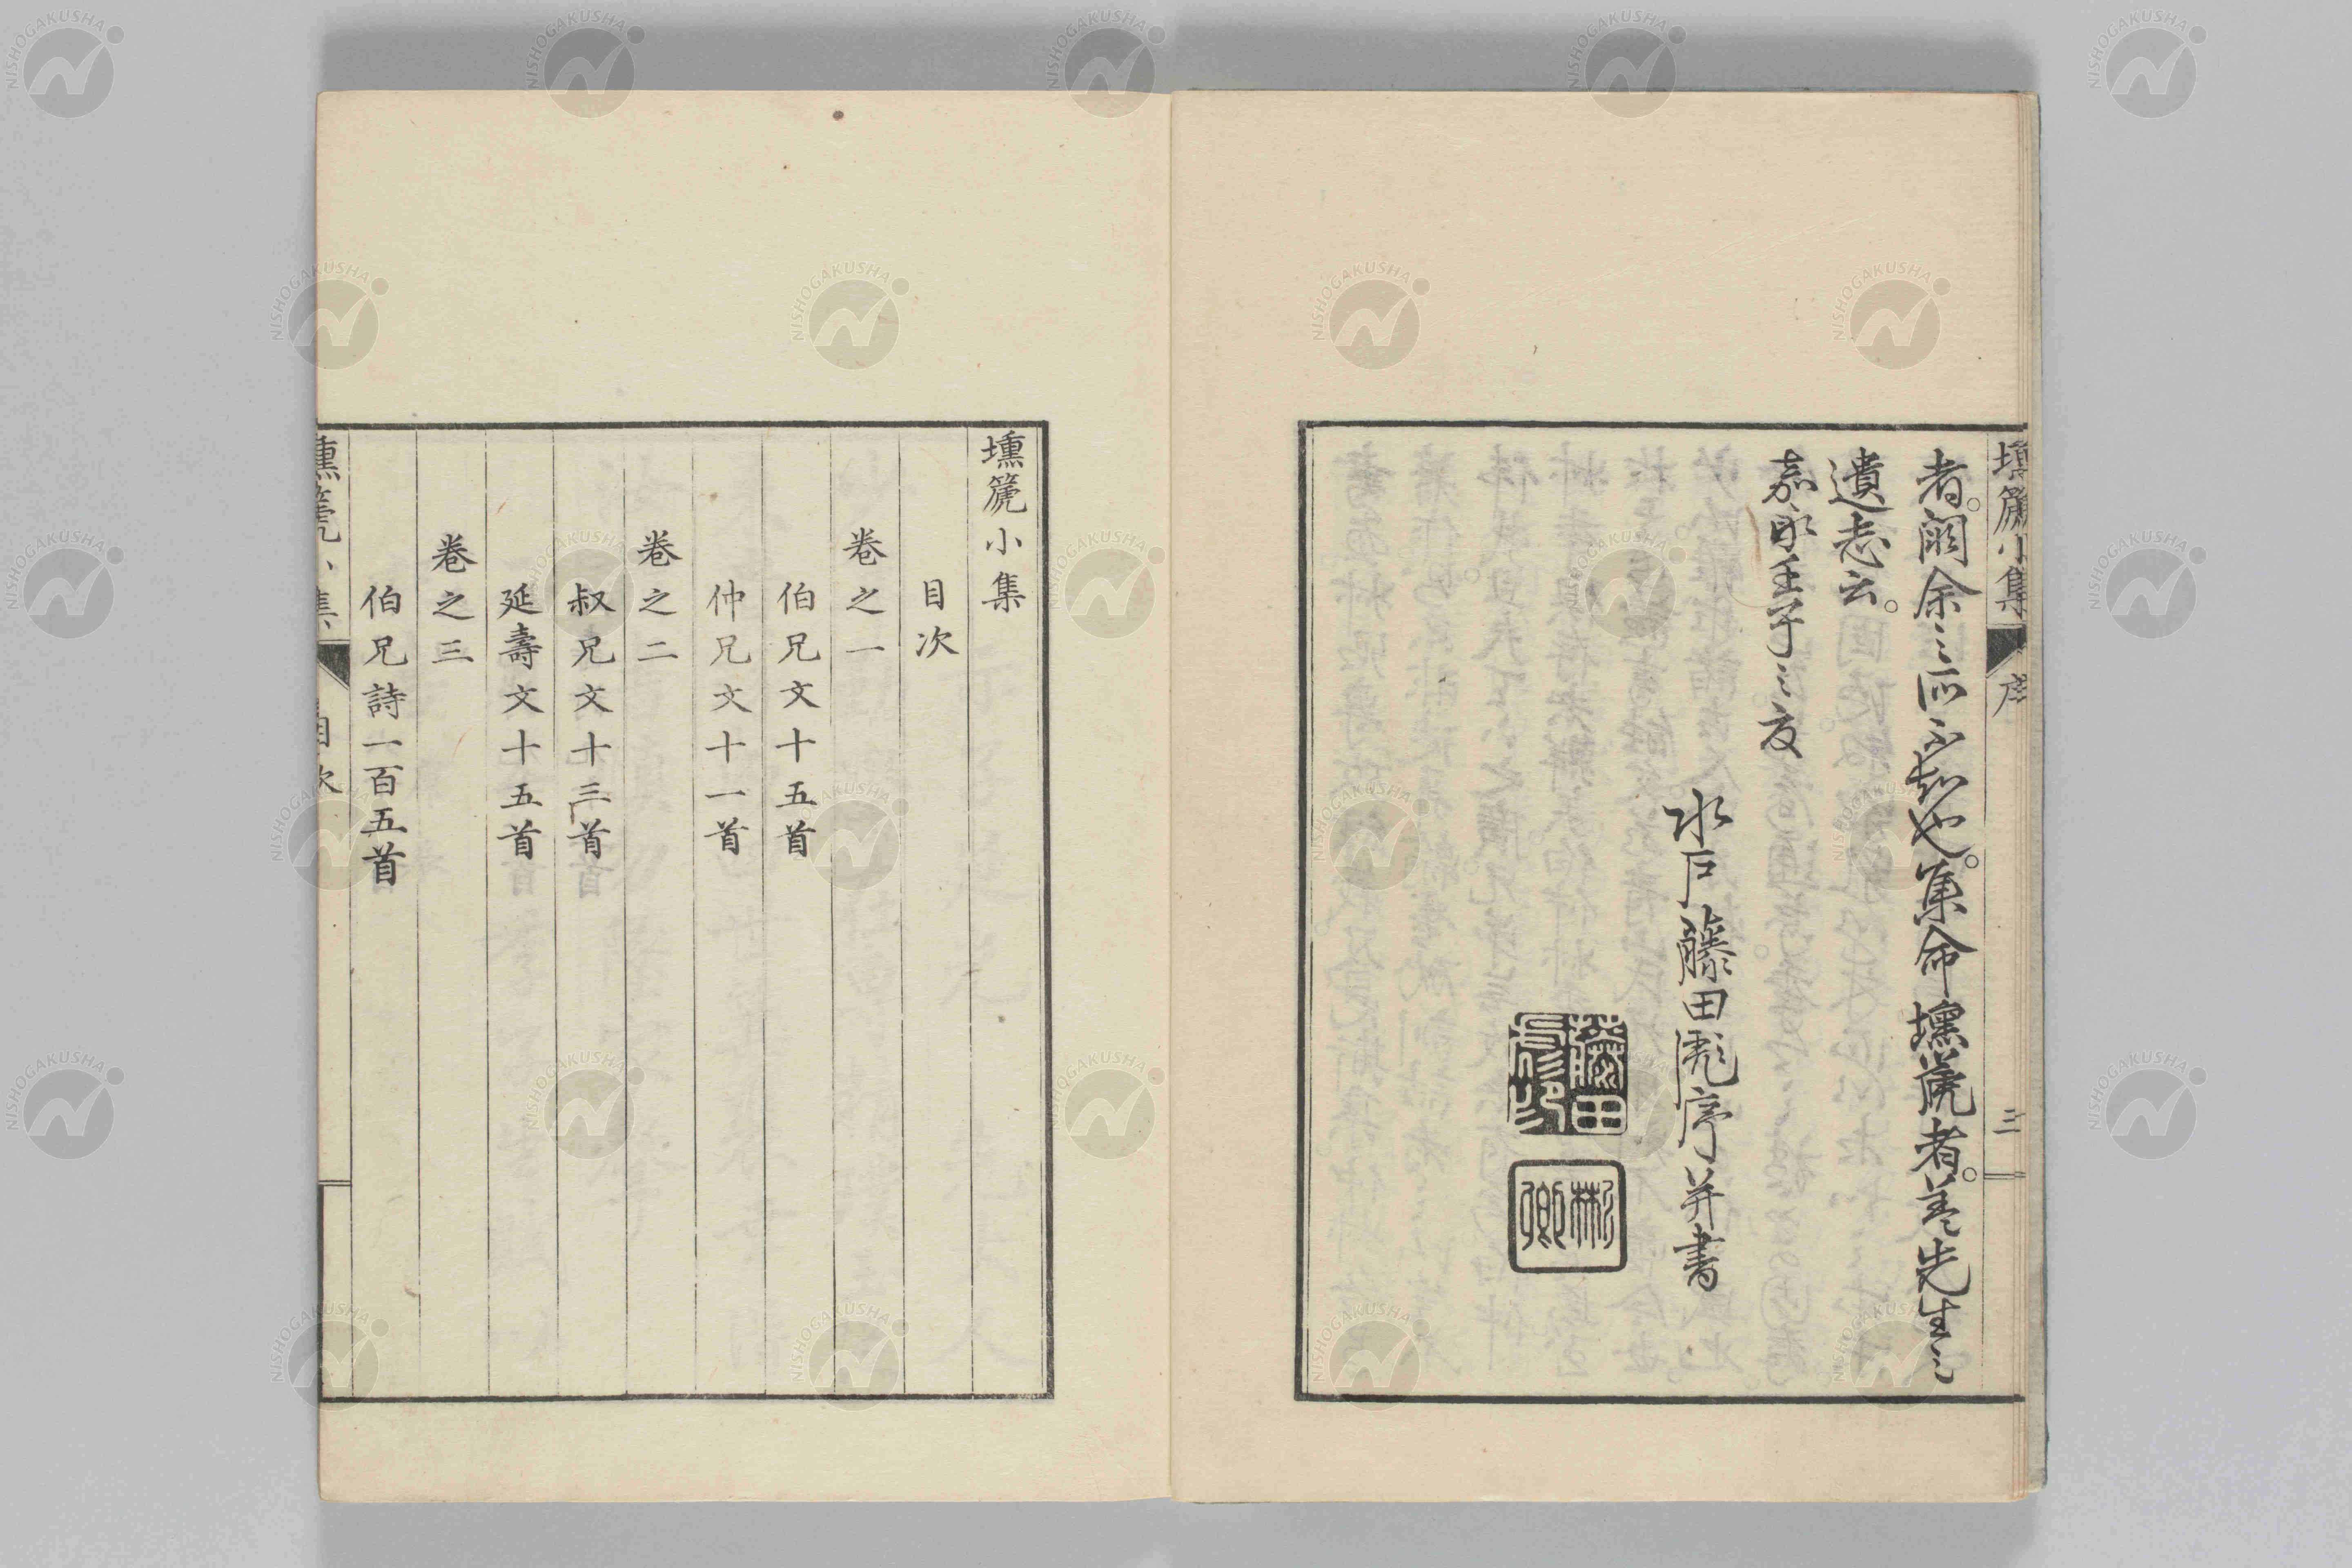 壎篪小集
序
三
者。闕余之所不知也。集命壎篪者。蓋先生之
遺志云。
嘉永壬子之夏
水戶藤田彪序并書
藤田
彪印
彬卿
壎篪小集
目次
卷之一
伯兄文十五首
仲兄文十一首
卷之二
叔兄文十三首
延壽文十五首
卷之三
伯兄詩一百五首
壎篪小集
目次